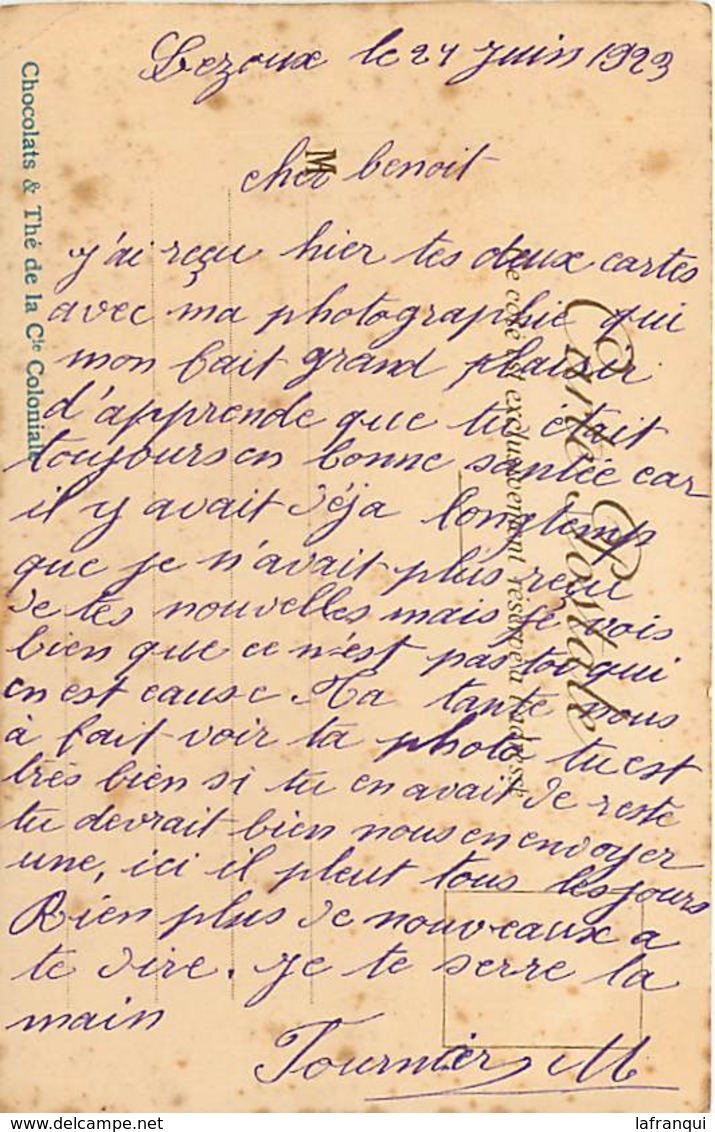 Lezoux le 24 Juin 1923
cher benoit
j'ai reçu hier tes deux cartes
avec ma photographie qui
mon fait grand plaisir
d'apprende que tu était
toujours en bonne santée car
il y avait déja longtemp
que je n'avait plus reçu
de tes nouvelles mais je vois
bien que ce n'est pas toi qui
en est cause Ma tante nous
à fait voir ta photo tu est
très bien si tu en avait de reste
tu devrait bien nous en envoyer
une, ici il pleut tous les jours
Rien plus de nouveaux a
te dire. je te serre la
main
Fournier M
Carte Postale
Ce côté est exclusivement réservé à l'adresse
M
Chocolats & Thé de la Cie Coloniale
lafranqui